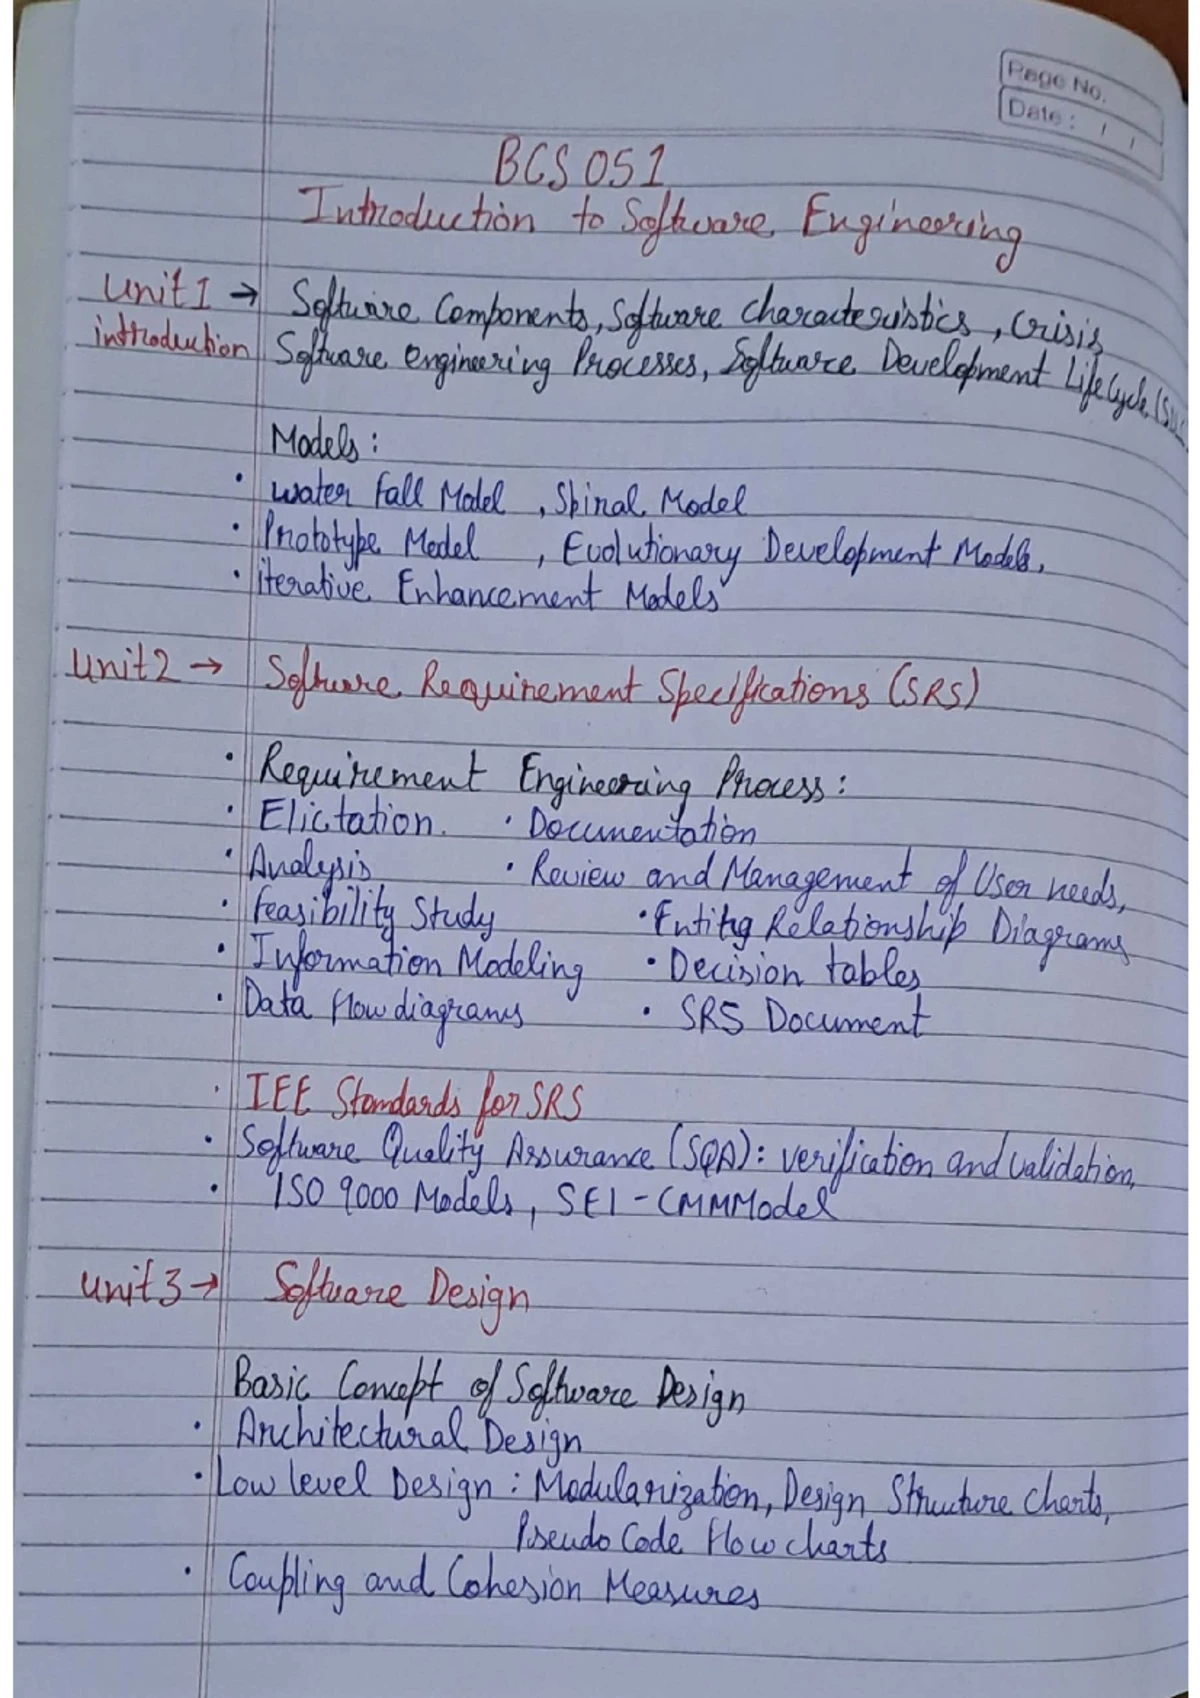 Page No.
Date: / /
BCS 051
Introduction to Software Engineering
Unit 1 → Software Components, Software characteristics, Crisis
introduction Software engineering Processes, Software Development Life Cycle
Models:
• water fall Model, Spiral Model
• Prototype Model, Evolutionary Development Models,
• iterative Enhancement Models
Unit 2 → Software Requirement Specifications (SRS)
• Requirement Engineering Process:
• Elictation. • Documentation
• Analysis • Review and Management of User needs,
• feasibility Study • Entity Relationship Diagrams
• Information Modeling • Decision tables
• Data flow diagrams • SRS Document
• IEE Standards for SRS
• Software Quality Assurance (SQA): verification and validation,
• ISO 9000 Models, SEI-CMM Model
Unit 3 → Software Design
Basic Concept of Software Design
• Architectural Design
• Low level Design: Modularization, Design Structure Charts,
Pseudo Code Flow charts
• Coupling and Cohesion Measures